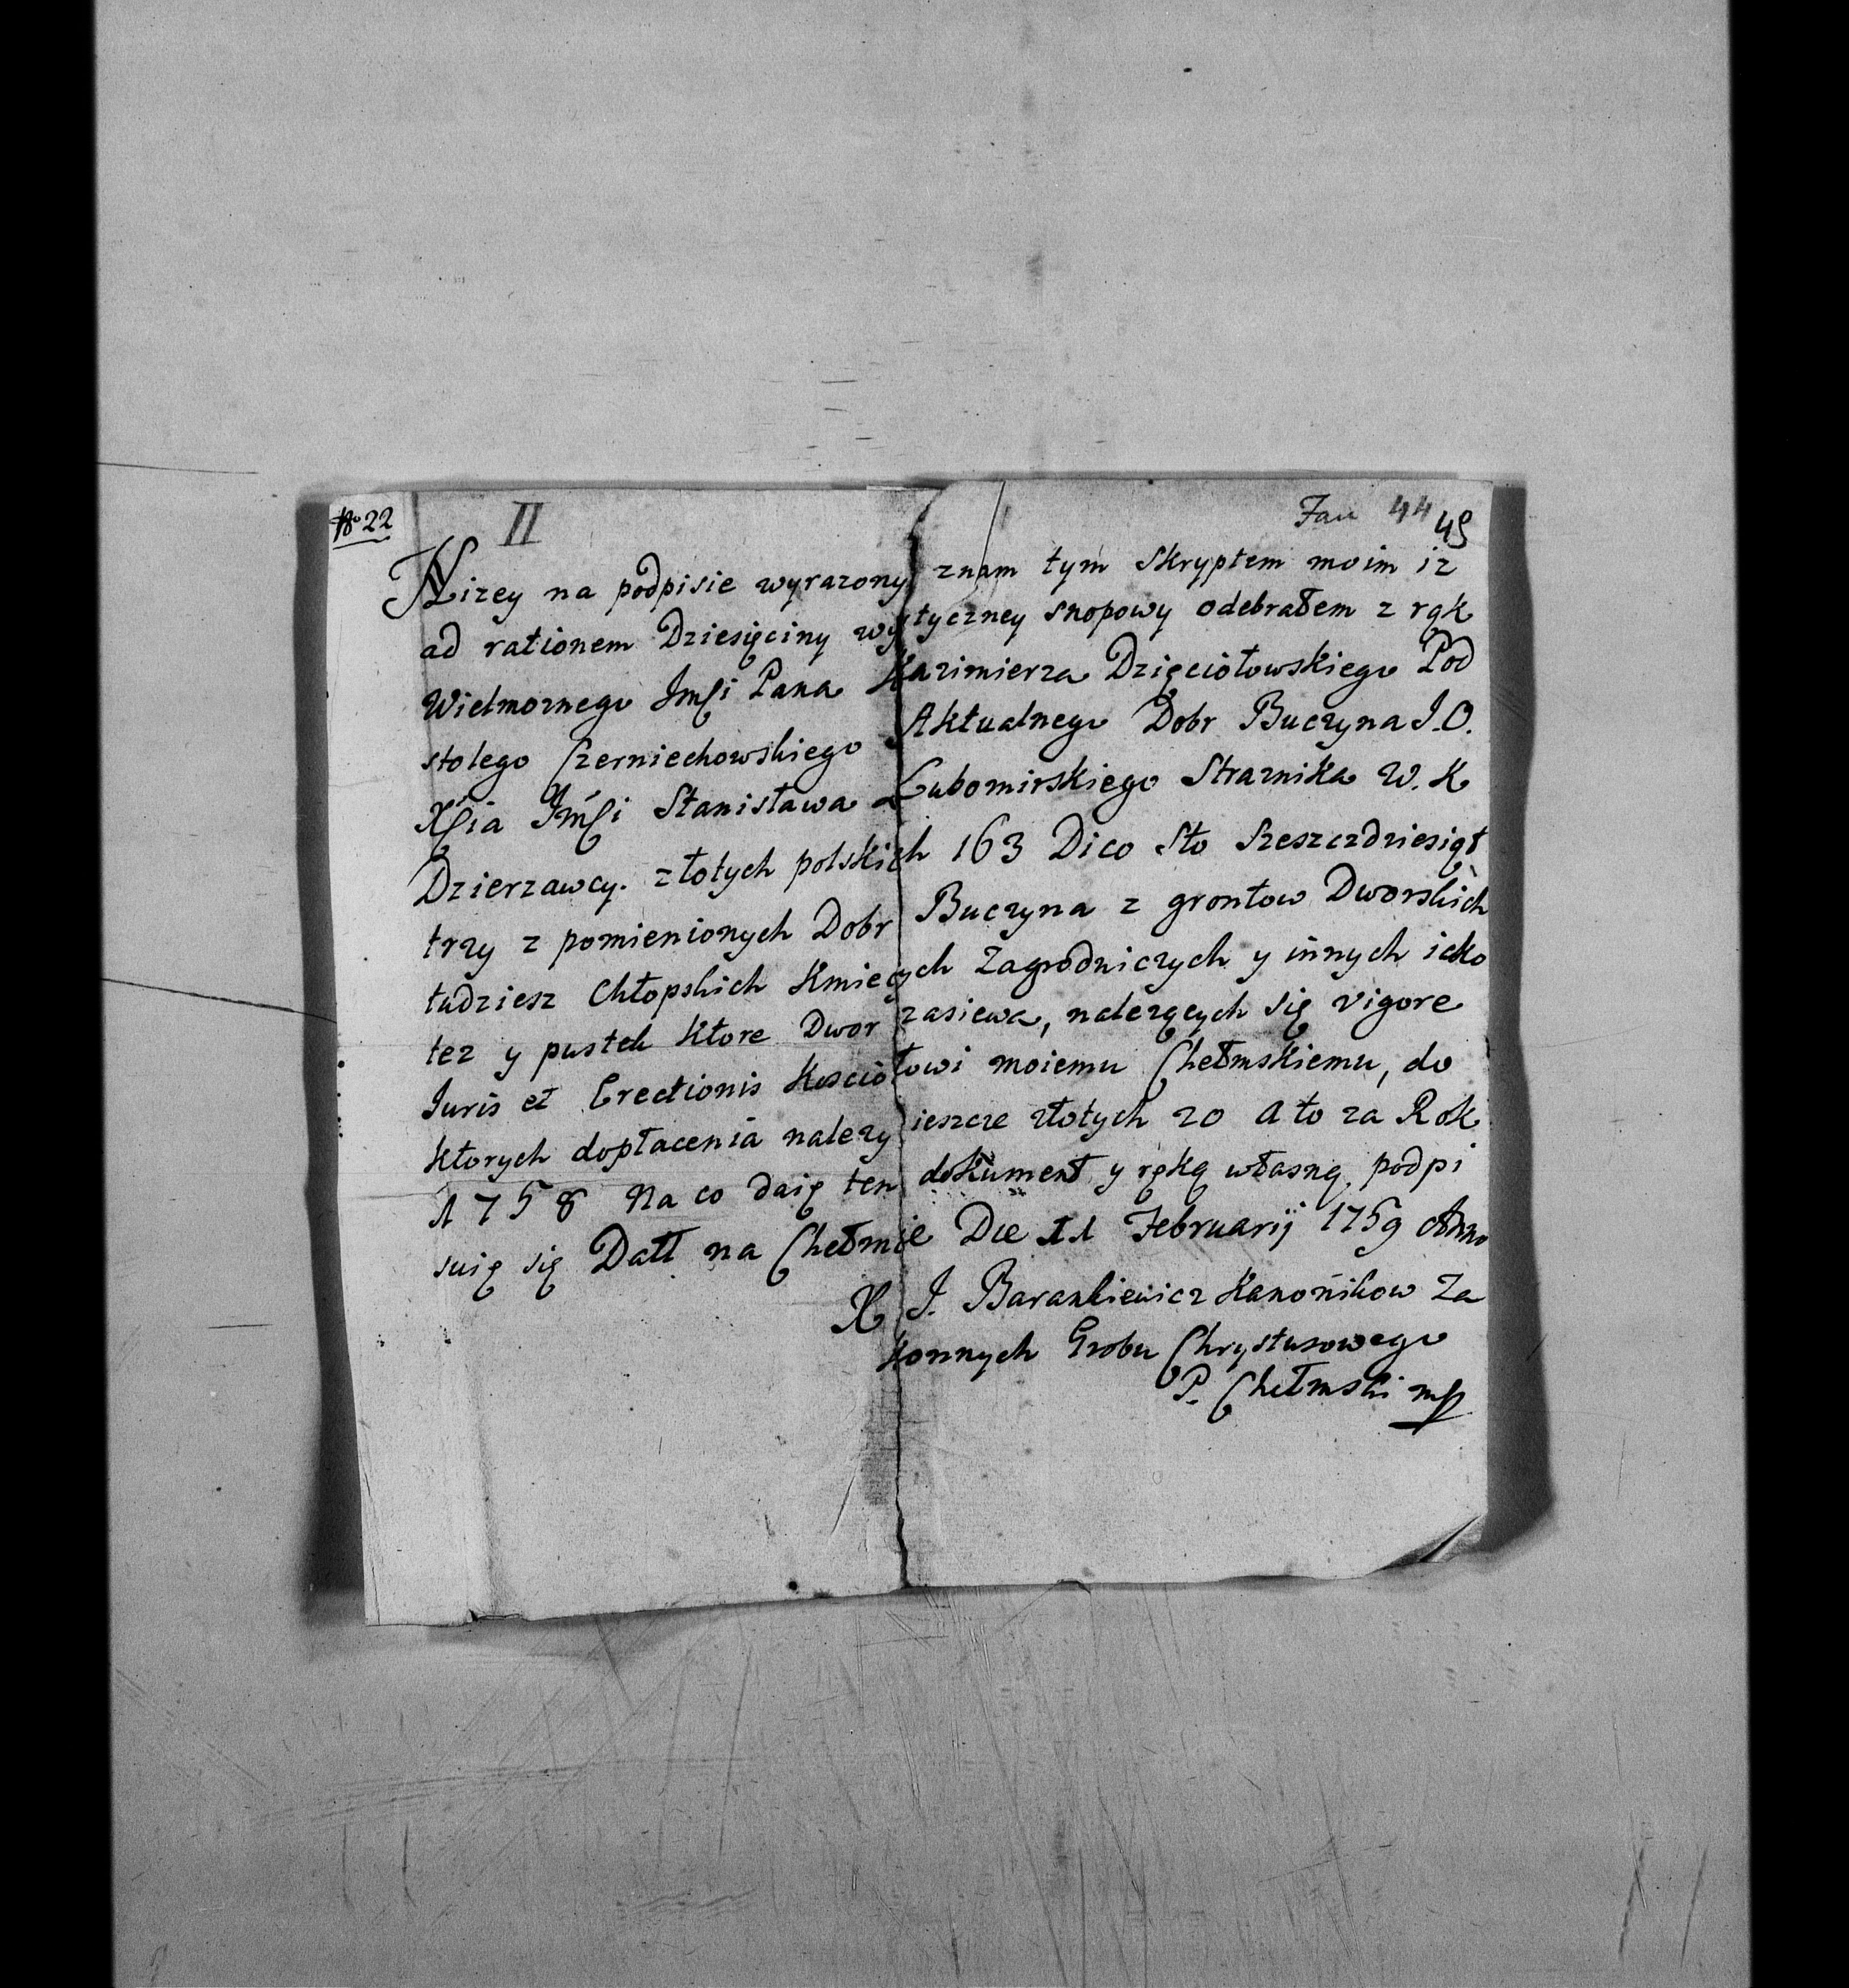 No 22
II
Fan 44 45
Nizey na podpisie wyrazony znam tym Skryptem moim iz
ad rationem Dziesięciny wytyczney snopowy odebrałem z rąk
Wielmoznego Jmsi Pana Kazimierza Dzięciołowskiego Pod
stolego Czerniechowskiego Aktualnego Dobr Buczyna J.O.
Xsia Jmsi Stanisława Lubomirskiego Straznika W. K
Dzierzawcy. złotych polskich 163 Dico Sto Szeszczdziesiąt
trzy z pomienionych Dobr Buczyna z grontow Dworskich
tudziesz Chłopskich Kmiecych Zagrodniczych y innych icko
tez y pustek Ktore Dwor zasiewa, nalezących się vigore
Juris et Erectionis Kosciołowi moiemu Chełmskiemu, do
Ktorych dopłacenia nalezy ieszcze złotych 20 a to za Rok
1758 Na co daię ten dokument y ręką własną podpi
suię się Datt na Chełmie Die 11 Februarij 1759 Anno
X J. Barankiewicz Kanonikow Za
konnych Grobu Chrystusowego
P. Chełmski mp